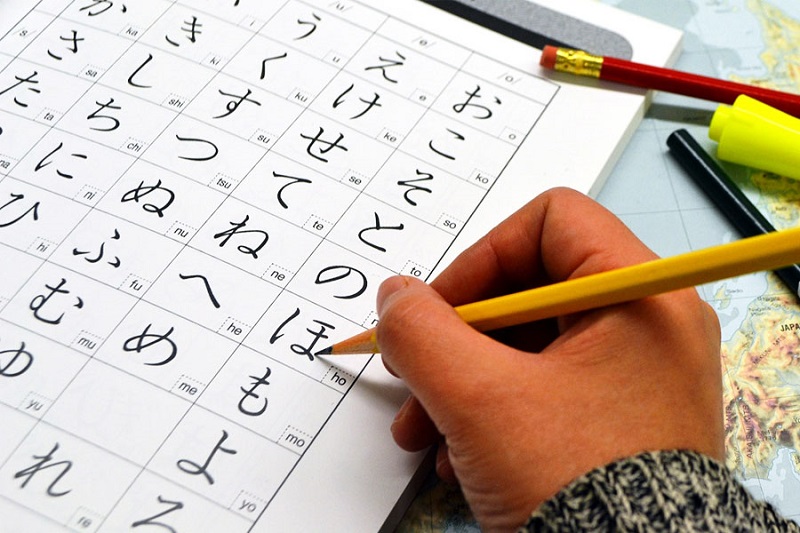 /u/ /e/ /o/
う u え e お o
か ka き ki く ku け ke こ ko
さ sa し shi す su せ se そ so
た ta ち chi つ tsu て te と to
na に ni ぬ nu ね ne の
ひ hi ふ fu へ he ほ ho
む mu め me も mo
ゆ yu よ yo
れ re
JAPA